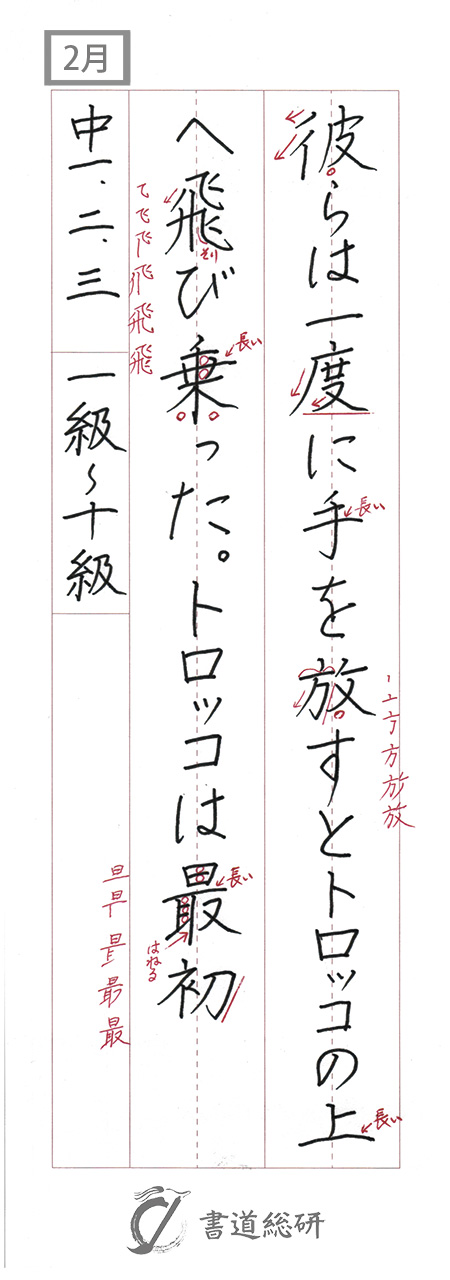 2月
彼らは一度に手を放すとトロッコの上
へ飛び乗った。トロッコは最初
中一、二、三
一級〜十級
長い
長い
長い
放
そり
長い
飛
長い
はねる
最
書道総研